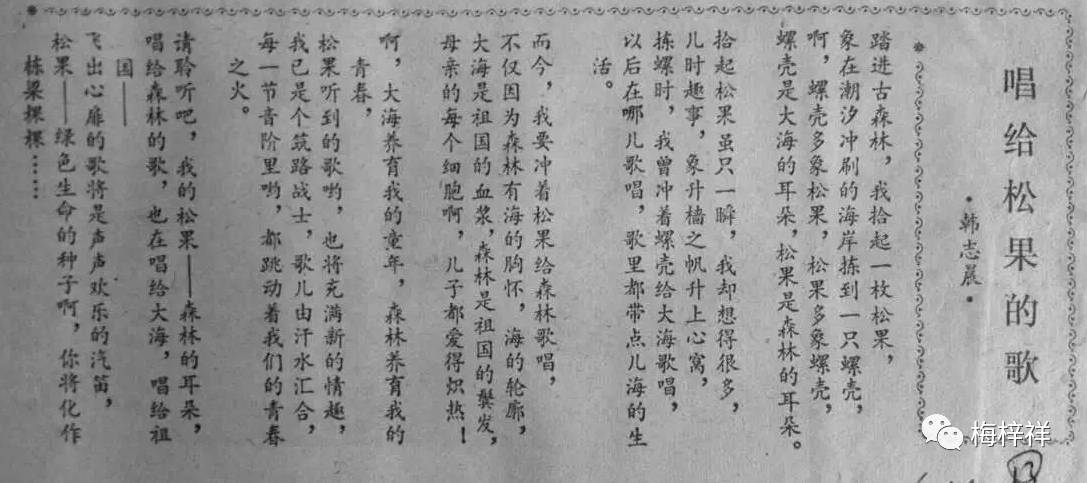 唱给松果的歌
·韩志晨·
踏进古森林，我拾起一枚松果，
象在潮汐冲刷的海岸拣到一只螺壳，
啊，螺壳多象松果，松果多象螺壳，
螺壳是大海的耳朵，松果是森林的耳朵。
拾起松果虽只一瞬，我却想得很多，
儿时趣事，象升樯之帆升上心窝，
拣螺时，我曾冲着螺壳给大海歌唱，
以后在哪儿歌唱，歌里都带点儿海的生
活。
而今，我要冲着松果给森林歌唱，
不仅因为森林有海的胸怀，海的轮廓，
大海是祖国的血浆，森林是祖国的鬓发，
母亲的每个细胞啊，儿子都爱得炽热！
啊，大海养育我的童年，森林养育我的
青春，
松果听到的歌哟，也将充满新的情趣，
我已是个筑路战士，歌儿由汗水汇合，
每一节音阶里哟，都跳动着我们的青春
之火。
请聆听吧，我的松果——森林的耳朵，
唱给森林的歌，也在唱给大海，唱给祖
国——
飞出心扉的歌将是声声欢乐的汽笛，
松果——绿色生命的种子啊，你将化作
栋梁棵棵……
梅梓祥